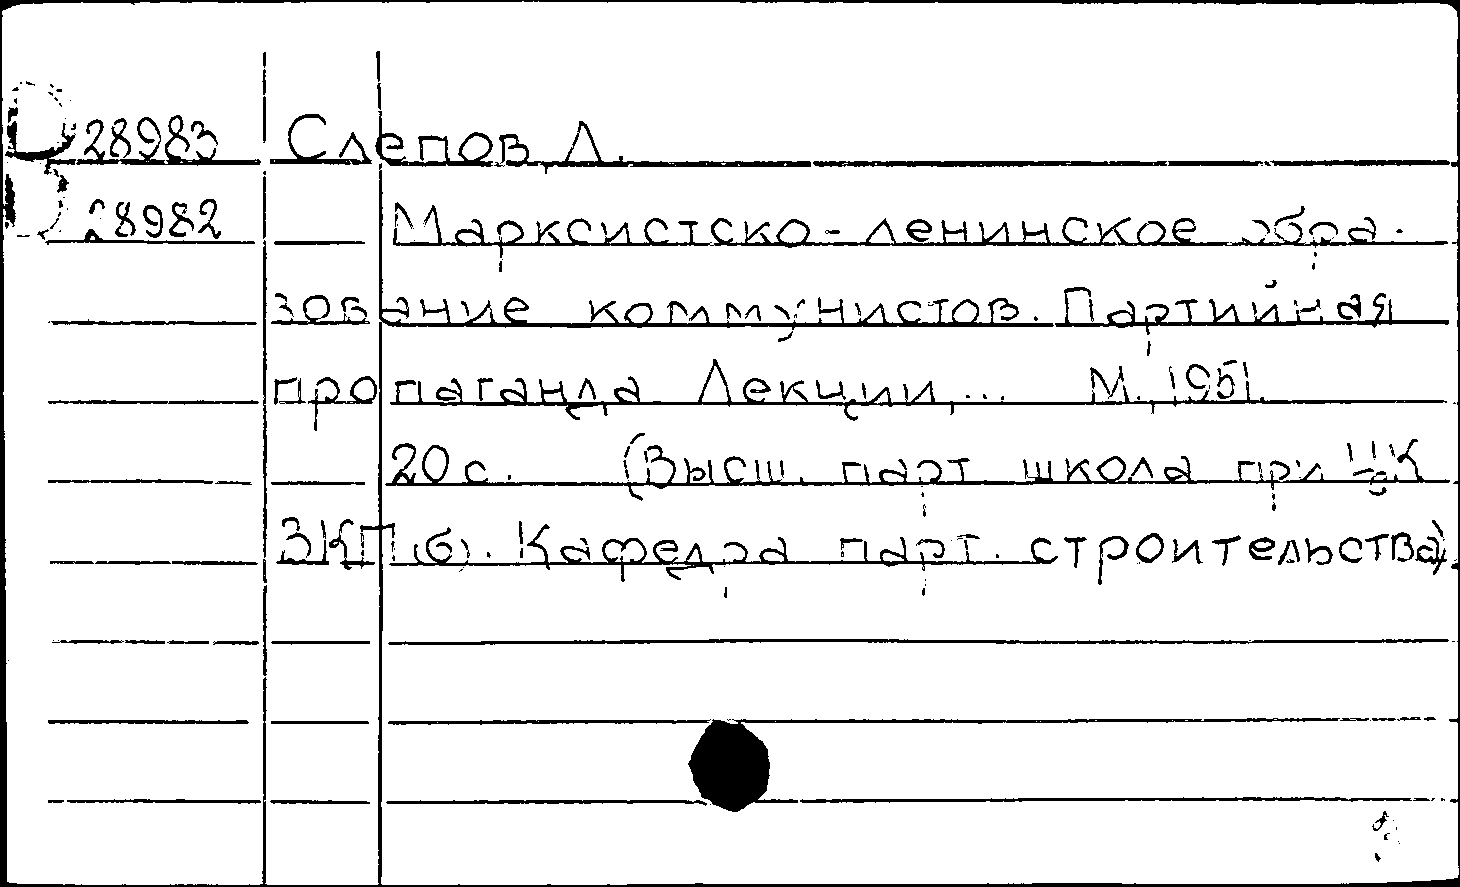 D 28983 Слепов, Л.
D 28982 Марксистско-ленинское обра-
зование коммунистов. Партийная
пропаганда. Лекции,... М., 1951.
20 с. (Высш. парт. школа при ЦК
ВКП(б). Кафедра парт. строительства).